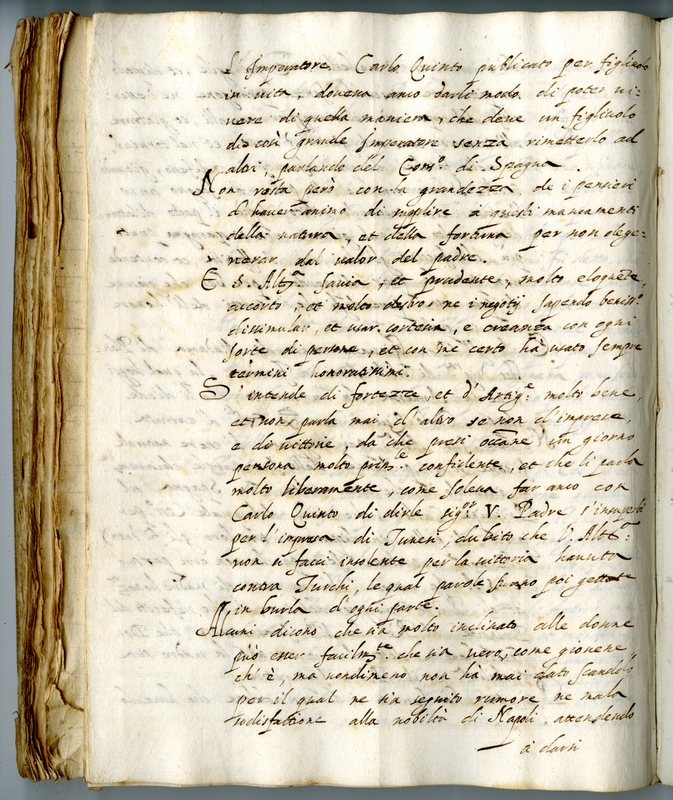 L'Imperatore Carlo Quinto publicato per figliuolo
in vita, doveva anco darli modo di poter vi=
vere di quella maniera, che deve un figliuolo
di così grande Imperatore senza rimetterlo ad
altri, parlando del Cons.º di Spagna.
Non resta però con la grandezza de i pensieri
d'haver animo di supplire à questi mancamenti
della natura, et della fortuna per non dege=
nerar dal valor del padre.
È S. Altz.ª savia, et prudente, molto eloquente,
accorto, et molto destro ne i negotij sapendo beniss.º
dissimular, et usar cortesia, e creanza con ogni
sorte di persone, et con me certo hà usato sempre
termini honoratissimi.
S'intende di fortezze, et d'Artig.e molto bene,
et non parla mai d'altro se non d'imprese,
e di vittorie, da che presi occ.ne un giorno
persona molto prin.le confidente, et che li parla
molto liberamente, come soleva far anco con
Carlo Quinto di dirle sig.or V. Padre s'insuperbì
per l'impresa di Tunesi, dubito che V. Altz.ª
non si facci insolente per la vittoria havuta
contra Turchi, le qual parole furno poi gettate
in burla d'ogni parte.
Alcuni dicono che sia molto inclinato alle donne
può esser facilm.te che sia vero, come giovene
ch'è, ma nondimeno non hà mai dato scandolo
per il qual ne sia seguito rumore, ne mala
sodisfattione alla nobiltà di Napoli, attendendo
à darsi